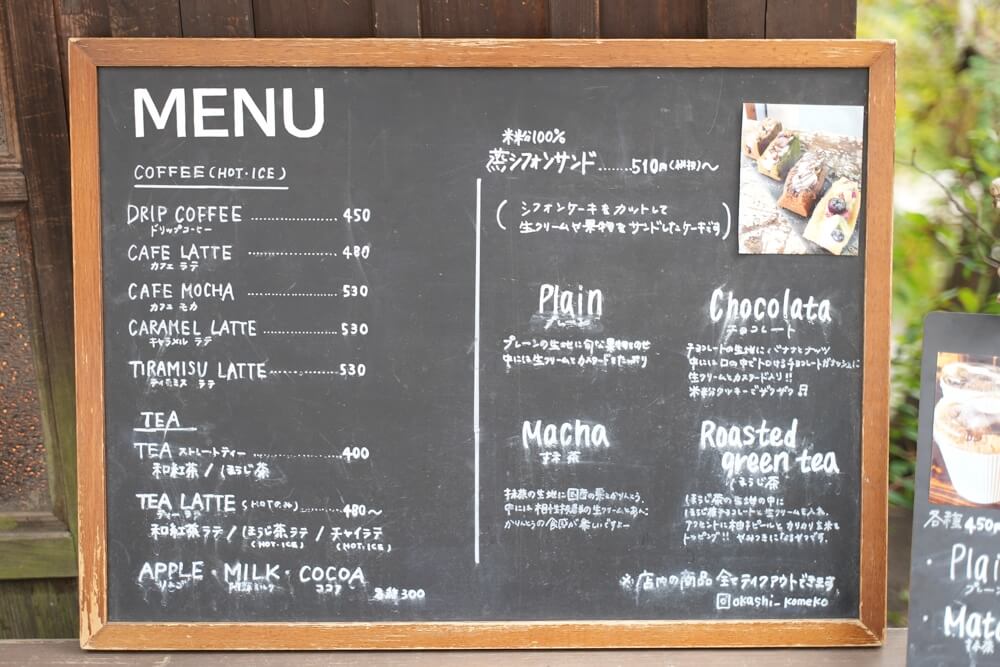 MENU
COFFEE (HOT・ICE)
DRIP COFFEE .................... 450
ドリップコーヒー
CAFE LATTE .................... 480
カフェ ラテ
CAFE MOCHA .................... 530
カフェ モカ
CARAMEL LATTE .................... 530
キャラメル ラテ
TIRAMISU LATTE .................... 530
ティラミス ラテ
TEA
TEA ストレートティー .................... 400
和紅茶 / ほうじ茶
TEA LATTE (HOTのみ) .................... 480〜
ティーラテ
和紅茶ラテ / ほうじ茶ラテ / チャイラテ
(HOT・ICE) (HOT・ICE)
APPLE・MILK・COCOA
りんご ミルク ココア
各種 300
米粉100%
蒸シフォンサンド ........ 510円(税抜)〜
( シフォンケーキをカットして
生クリームや果物をサンドしたケーキです )
Plain
プレーン
プレーンの生地に旬な果物をのせ
中には生クリームとカスタードをたっぷり
Chocolata
チョコレート
チョコレートの生地にバナナとナッツ
中には口の中でトロけるチョコレートガナッシュに
生クリームとカスタード入り!!
米粉クッキーでザクザク♫
Macha
まっ茶
抹茶の生地に国産の栗とかりんとう、
中には相性抜群の生クリームとあん
かりんとうの食感が楽しいです
Roasted
green tea
ほうじ茶
ほうじ茶の生地の中に
ほうじ茶チョコレートと生クリームを入れ、
アクセントに柚子ピールとカリカリ玄米を
トッピング!! やみつきになるやつです。
※店内の商品 全てテイクアウトできます
okashi_komeko
各種450円
・Plai
プレーン
・Matc
まっ茶